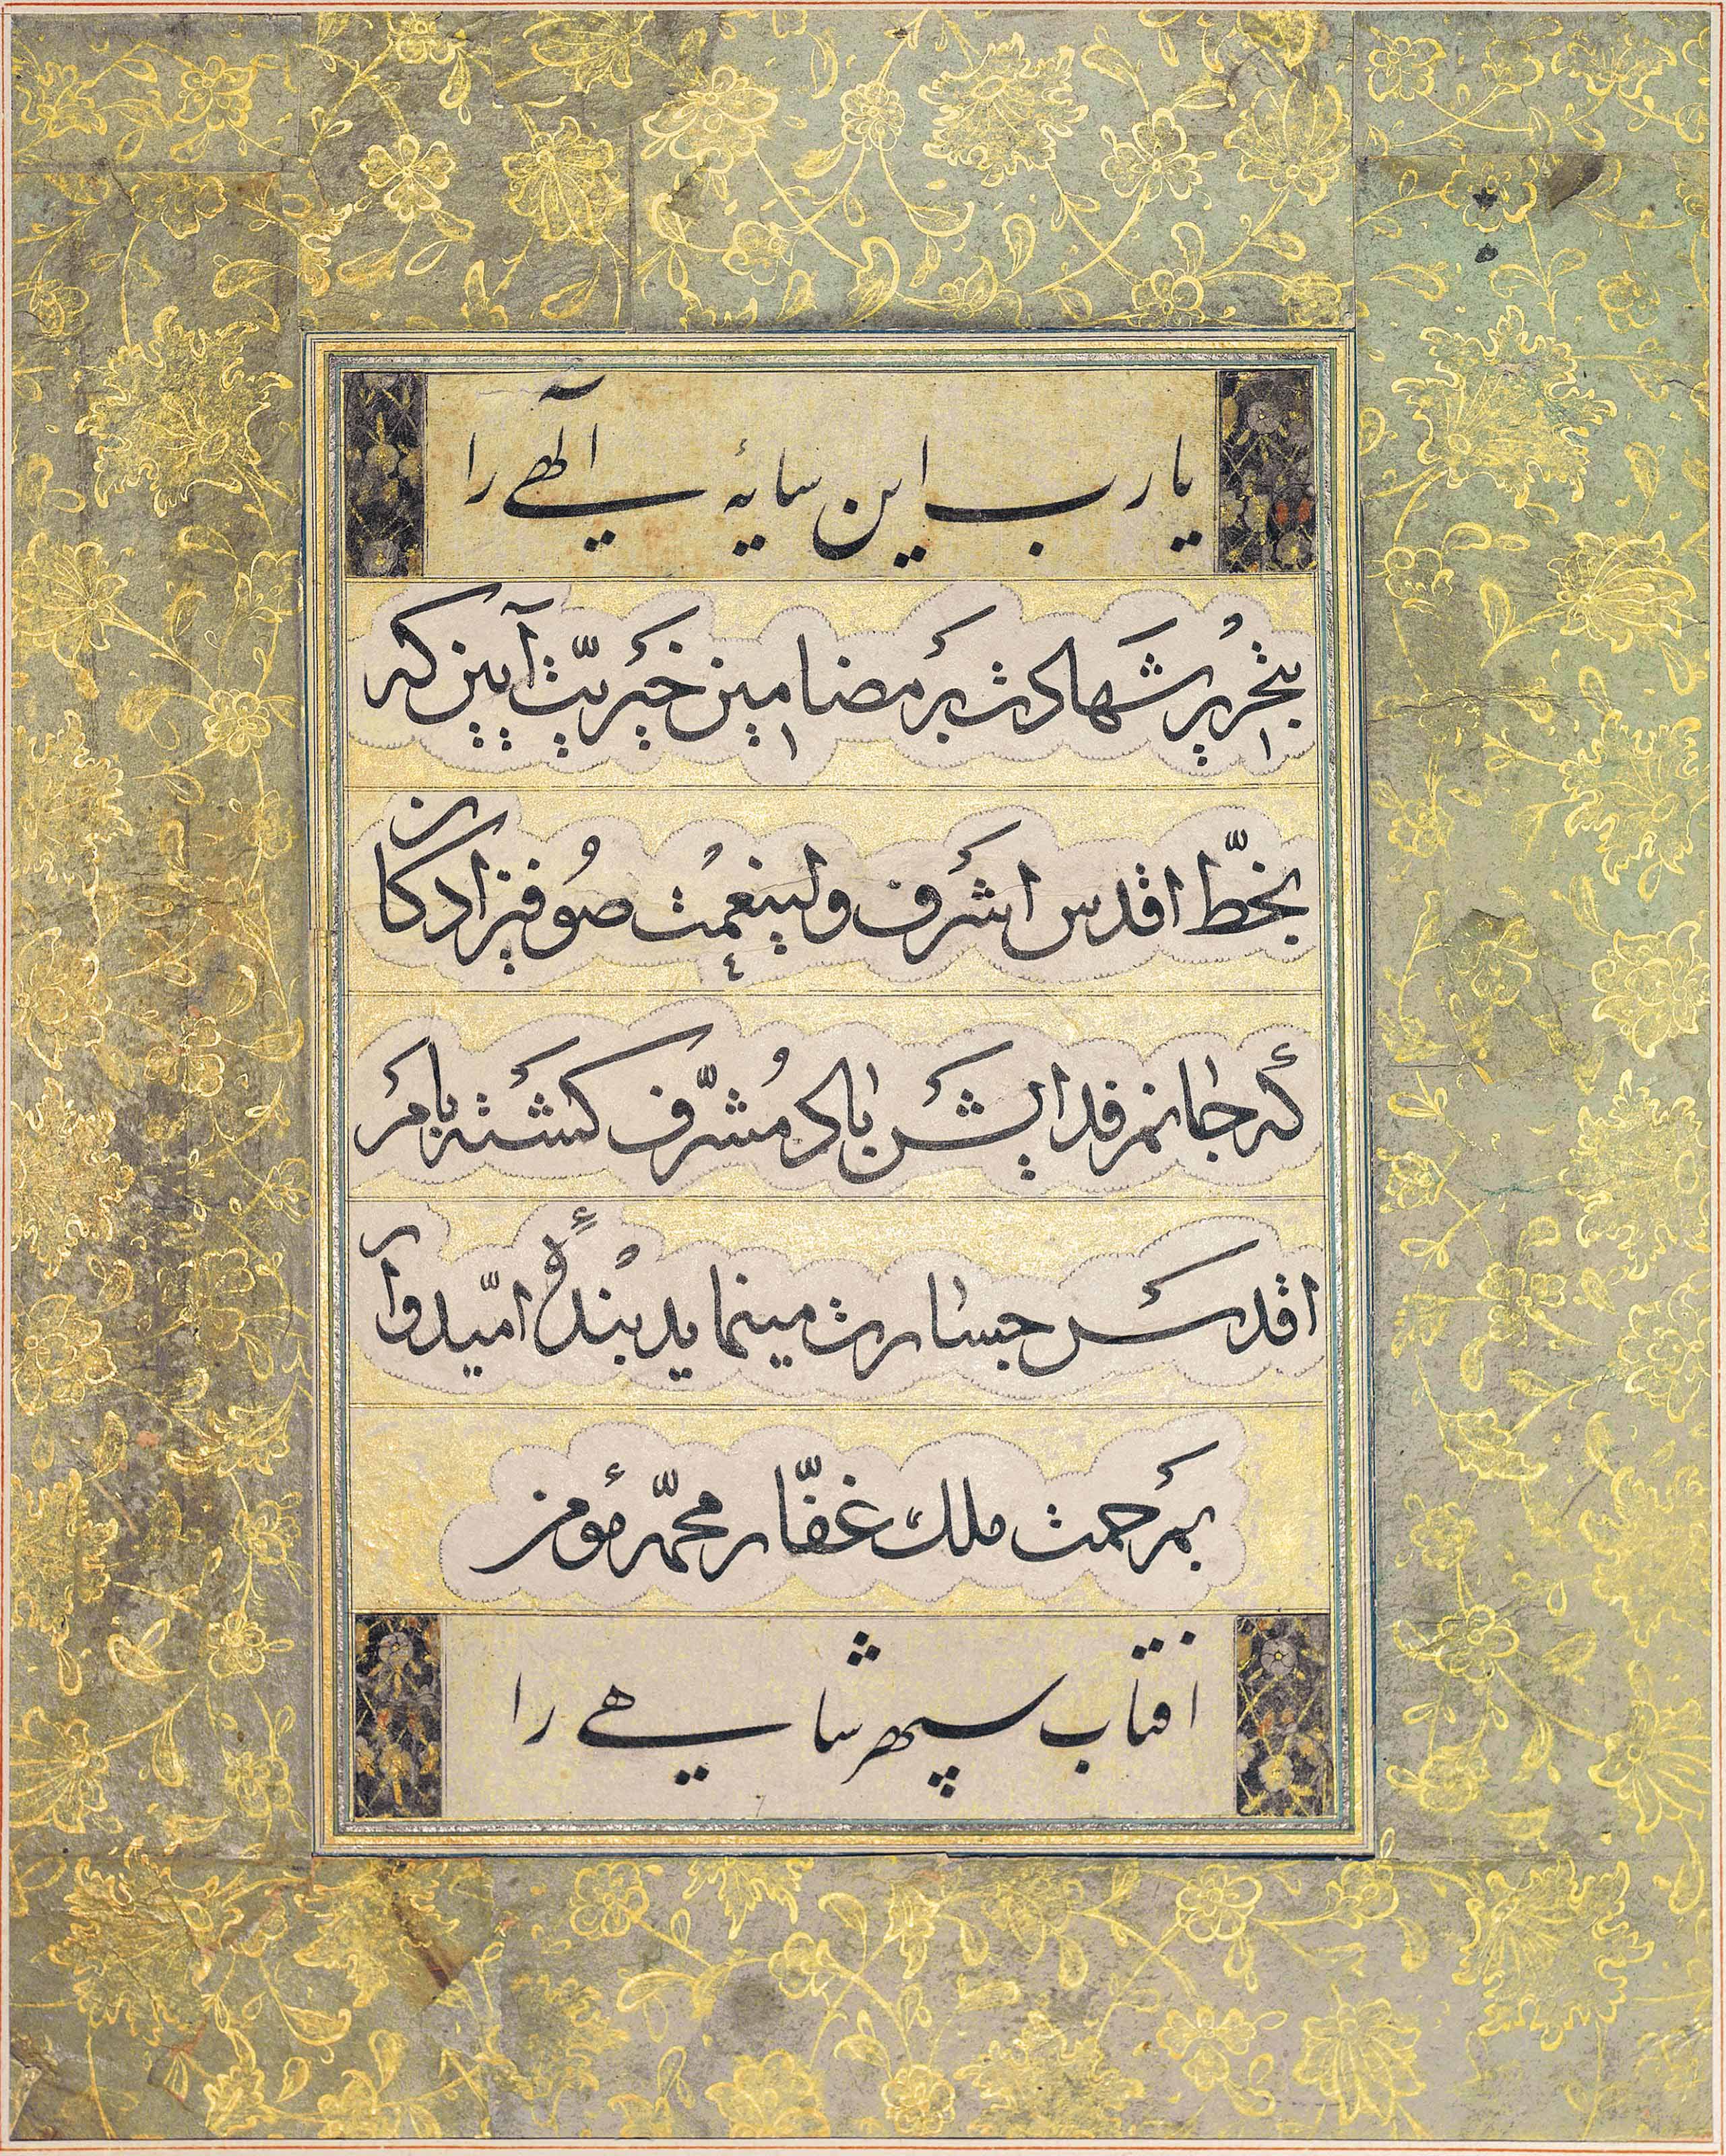 یا رب این سایهٔ الٓهی را
بتحریر شهادت بر مضامین خیریّت آیین که
بخطّ اقدس اشرف ولینعمت صوفیزادکان
که جانم فدایش باد مُشرّف کشته بامر
اقدس جسارت مینماید بندهٔ امّیدوار
بمرحمت ملک غفّار محمّد مؤمن
افتاب سپهر شاهی را